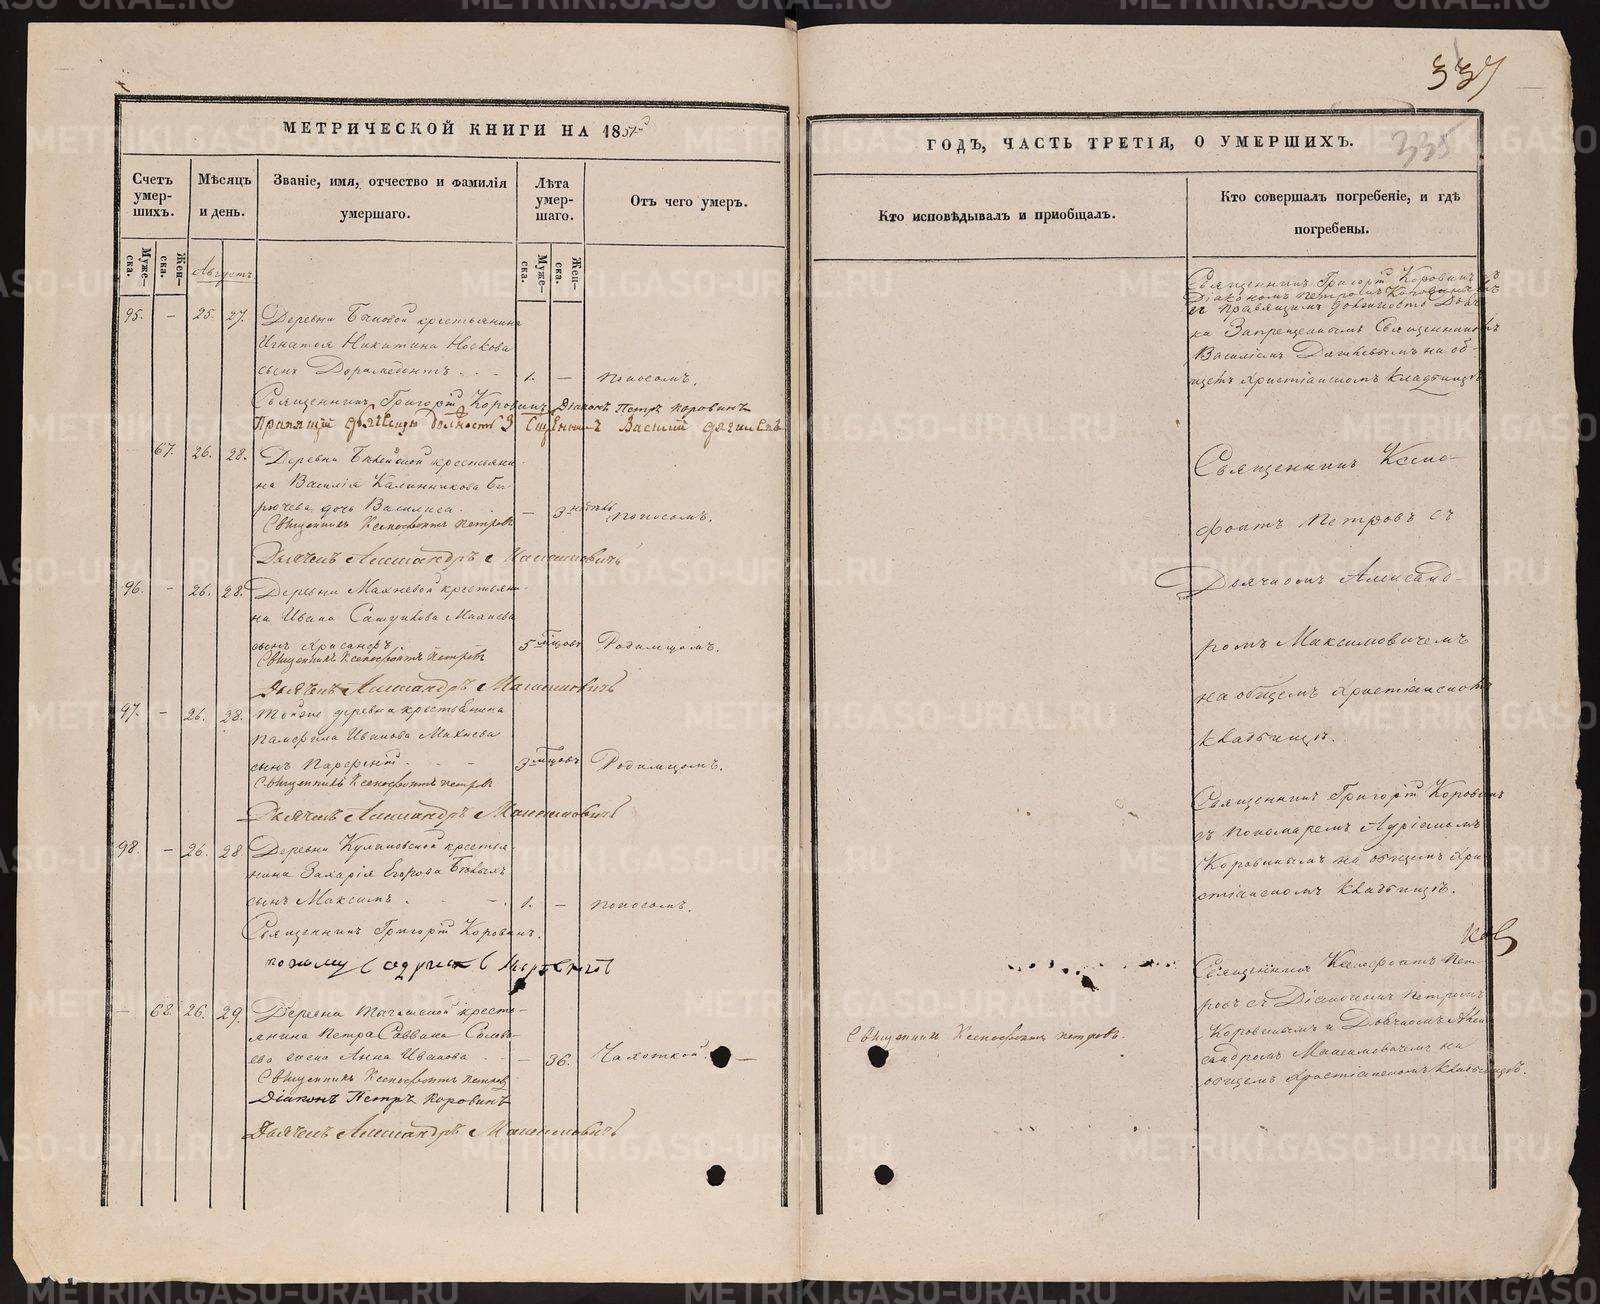 337
335
МЕТРИЧЕСКОЙ КНИГИ НА 1851й
ГОДЪ, ЧАСТЬ ТРЕТІЯ, О УМЕРШИХЪ.
Счетъ умер-шихъ.
Мѣсяцъ и день.
Званіе, имя, отчество и фамилія умершаго.
Лѣта умер-шаго.
Отъ чего умеръ.
Кто исповѣдывалъ и пріобщалъ.
Кто совершалъ погребеніе, и гдѣ погребены.
Муже-ска.
Жен-ска.
Августъ
Муже-ска.
Жен-ска.
95. – 25. 27. Деревни Быковой крестьянина
Игнатія Никитина Носкова
сынъ Доримедонтъ 1. – Поносомъ.
Священникъ Григорій Коровинъ Діаконъ Петръ Коровинъ
Василій
67. 26. 28. Деревни крестьяни-
на Василія Калинникова Би-
рючева дочь Василиса – 3 Поносомъ.
Священникъ Ксенофонтъ Петровъ
Дьячекъ Александръ Максимовичъ
96. – 26. 28. Деревни Махневой крестьяни-
на Ивана Махнева
сынъ Хрисанфъ 5 Родимцомъ.
Священникъ Ксенофонтъ Петровъ
Дьячекъ Александръ Максимовичъ
97. – 26. 28. Тойже деревни крестьянина
Памфила Иванова Махнева
сынъ Парфеній 3 Родимцомъ.
Священникъ Ксенофонтъ Петровъ
Дьячекъ Александръ Максимовичъ
98. – 26. 28. Деревни Куликовской крестья-
нина Захарія Егорова Быкова
сынъ Максимъ 1. – Поносомъ.
Священникъ Григорій Коровинъ.
– 68. 26. 29. Деревни крестья-
янина Петра Саввина
жена Анна Иванова – 36. Чахоткой. –
Священникъ Ксенофонтъ Петровъ
Діаконъ Петръ Коровинъ
Дьячекъ Александръ Максимовичъ
Священникъ Ксенофонтъ Петровъ.
Священникъ Григорій Коровинъ съ
Діакономъ Петромъ Коровинымъ
и правящимъ должность Дьяч-
ка Запрещеннымъ Священникомъ
Василіемъ на об-
щемъ христіанскомъ кладбищѣ
Священникъ Ксено-
фонтъ Петровъ съ
Дьячкомъ Александ-
ромъ Максимовичемъ
на общемъ христіанскомъ
кладбищѣ.
Священникъ Григорій Коровинъ
съ пономаремъ
Коровинымъ на общемъ хри-
стіанскомъ кладбищѣ.
Священникъ Ксенофонтъ Пет-
ровъ съ Діакономъ Петромъ
Коровинымъ и Дьячкомъ Алек-
сандромъ Максимовичемъ на
общемъ христіанскомъ кладбищѣ.
METRIKI.GASO-URAL.RU